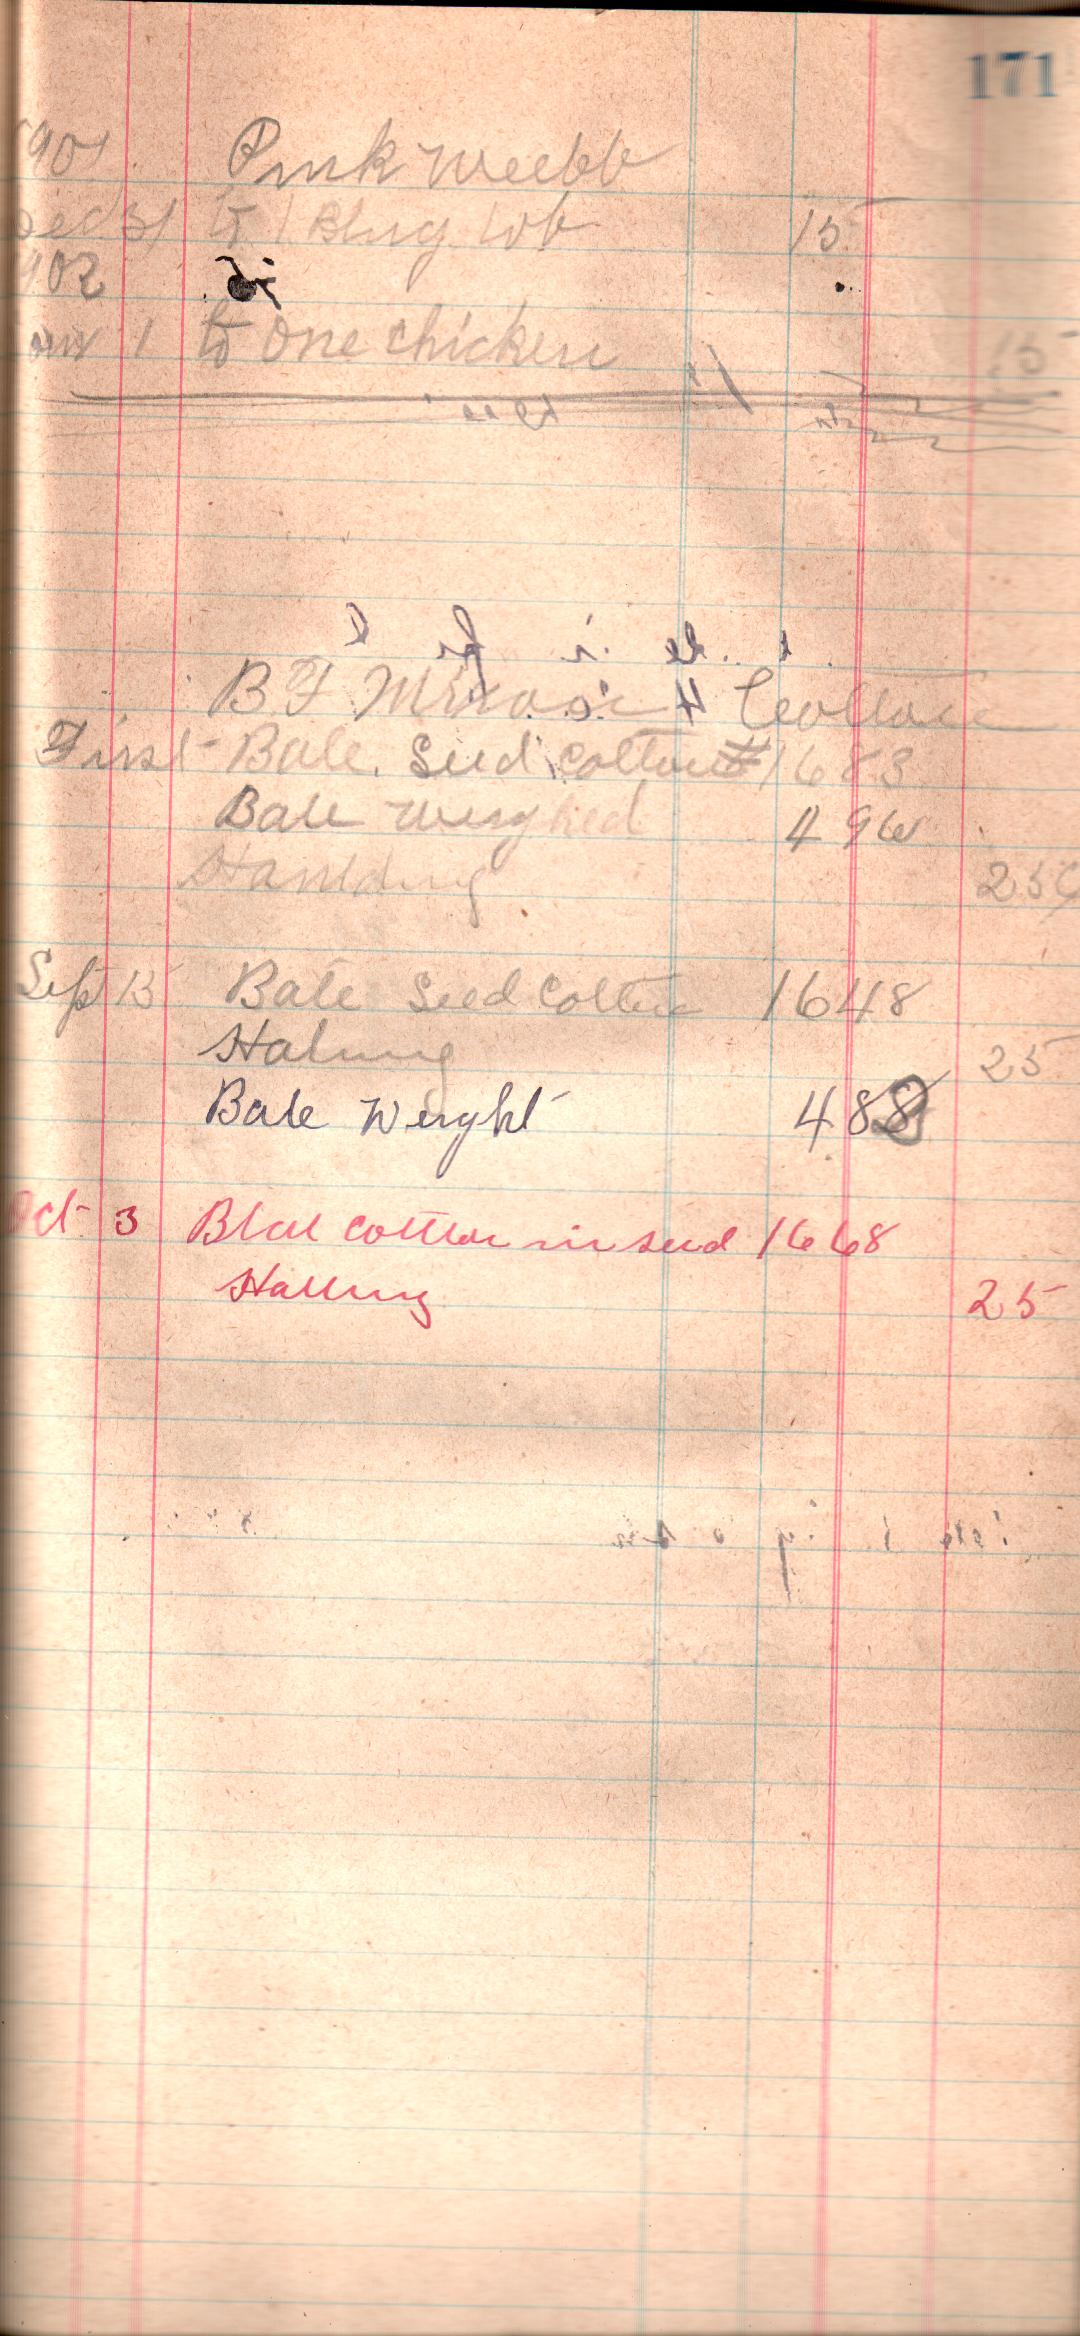 171
1901 Pink Weebb
Dec 31 to 1 Plug tob 15
1902
Jan 1 to One chicken 15
B F Cottone
First Bale Seed Cotton # 1683
Bale weighed 496
Haulding 25c
Sept 13 Bale Seed Cotton 1648
Haluing 25
Bale Weight 488
Oct 3 Blal cotton in seed 1668
Halling 25